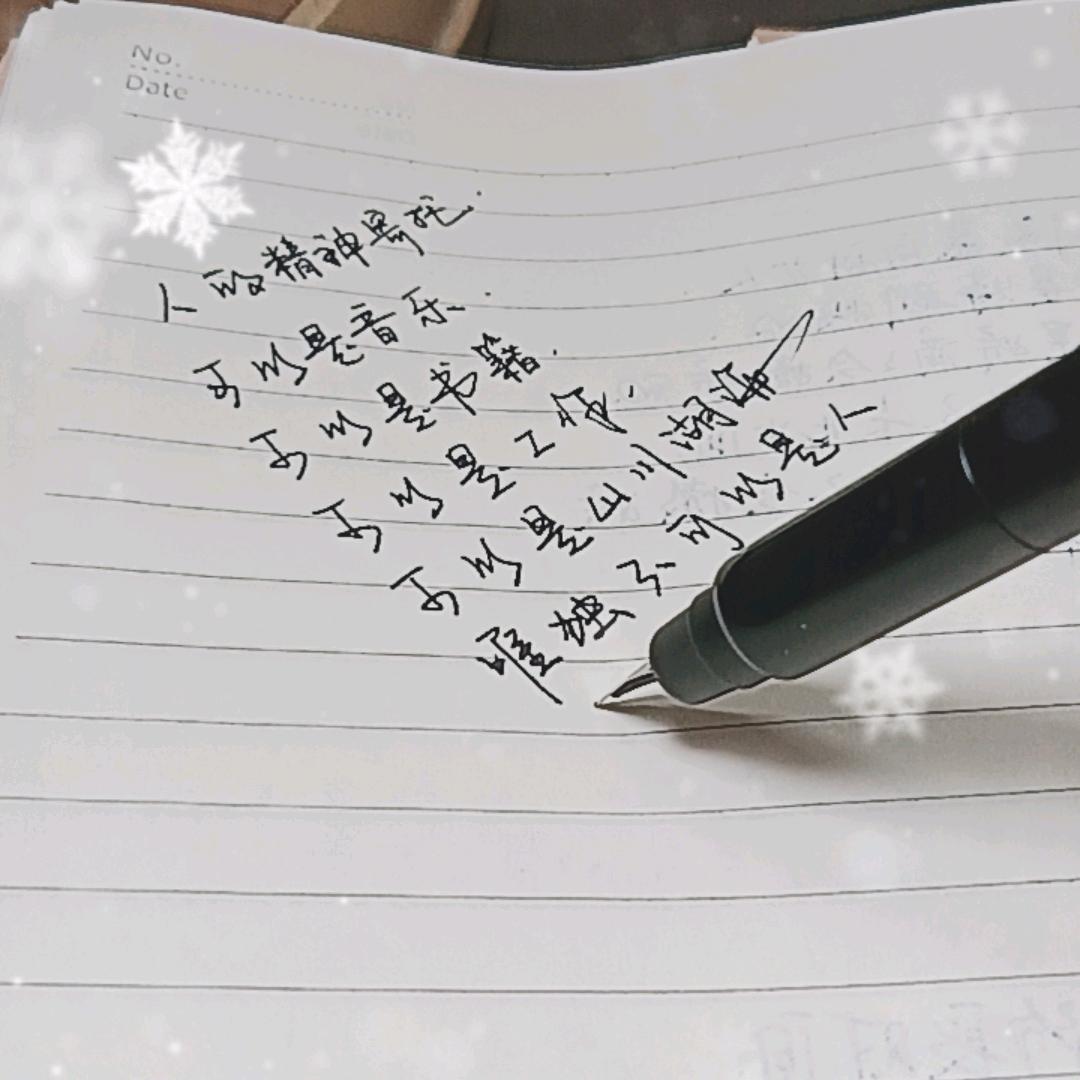 No.
Date
人的精神寄托.
可以是音乐.
可以是书籍.
可以是工作.
可以是山川湖海
唯独不可以是人